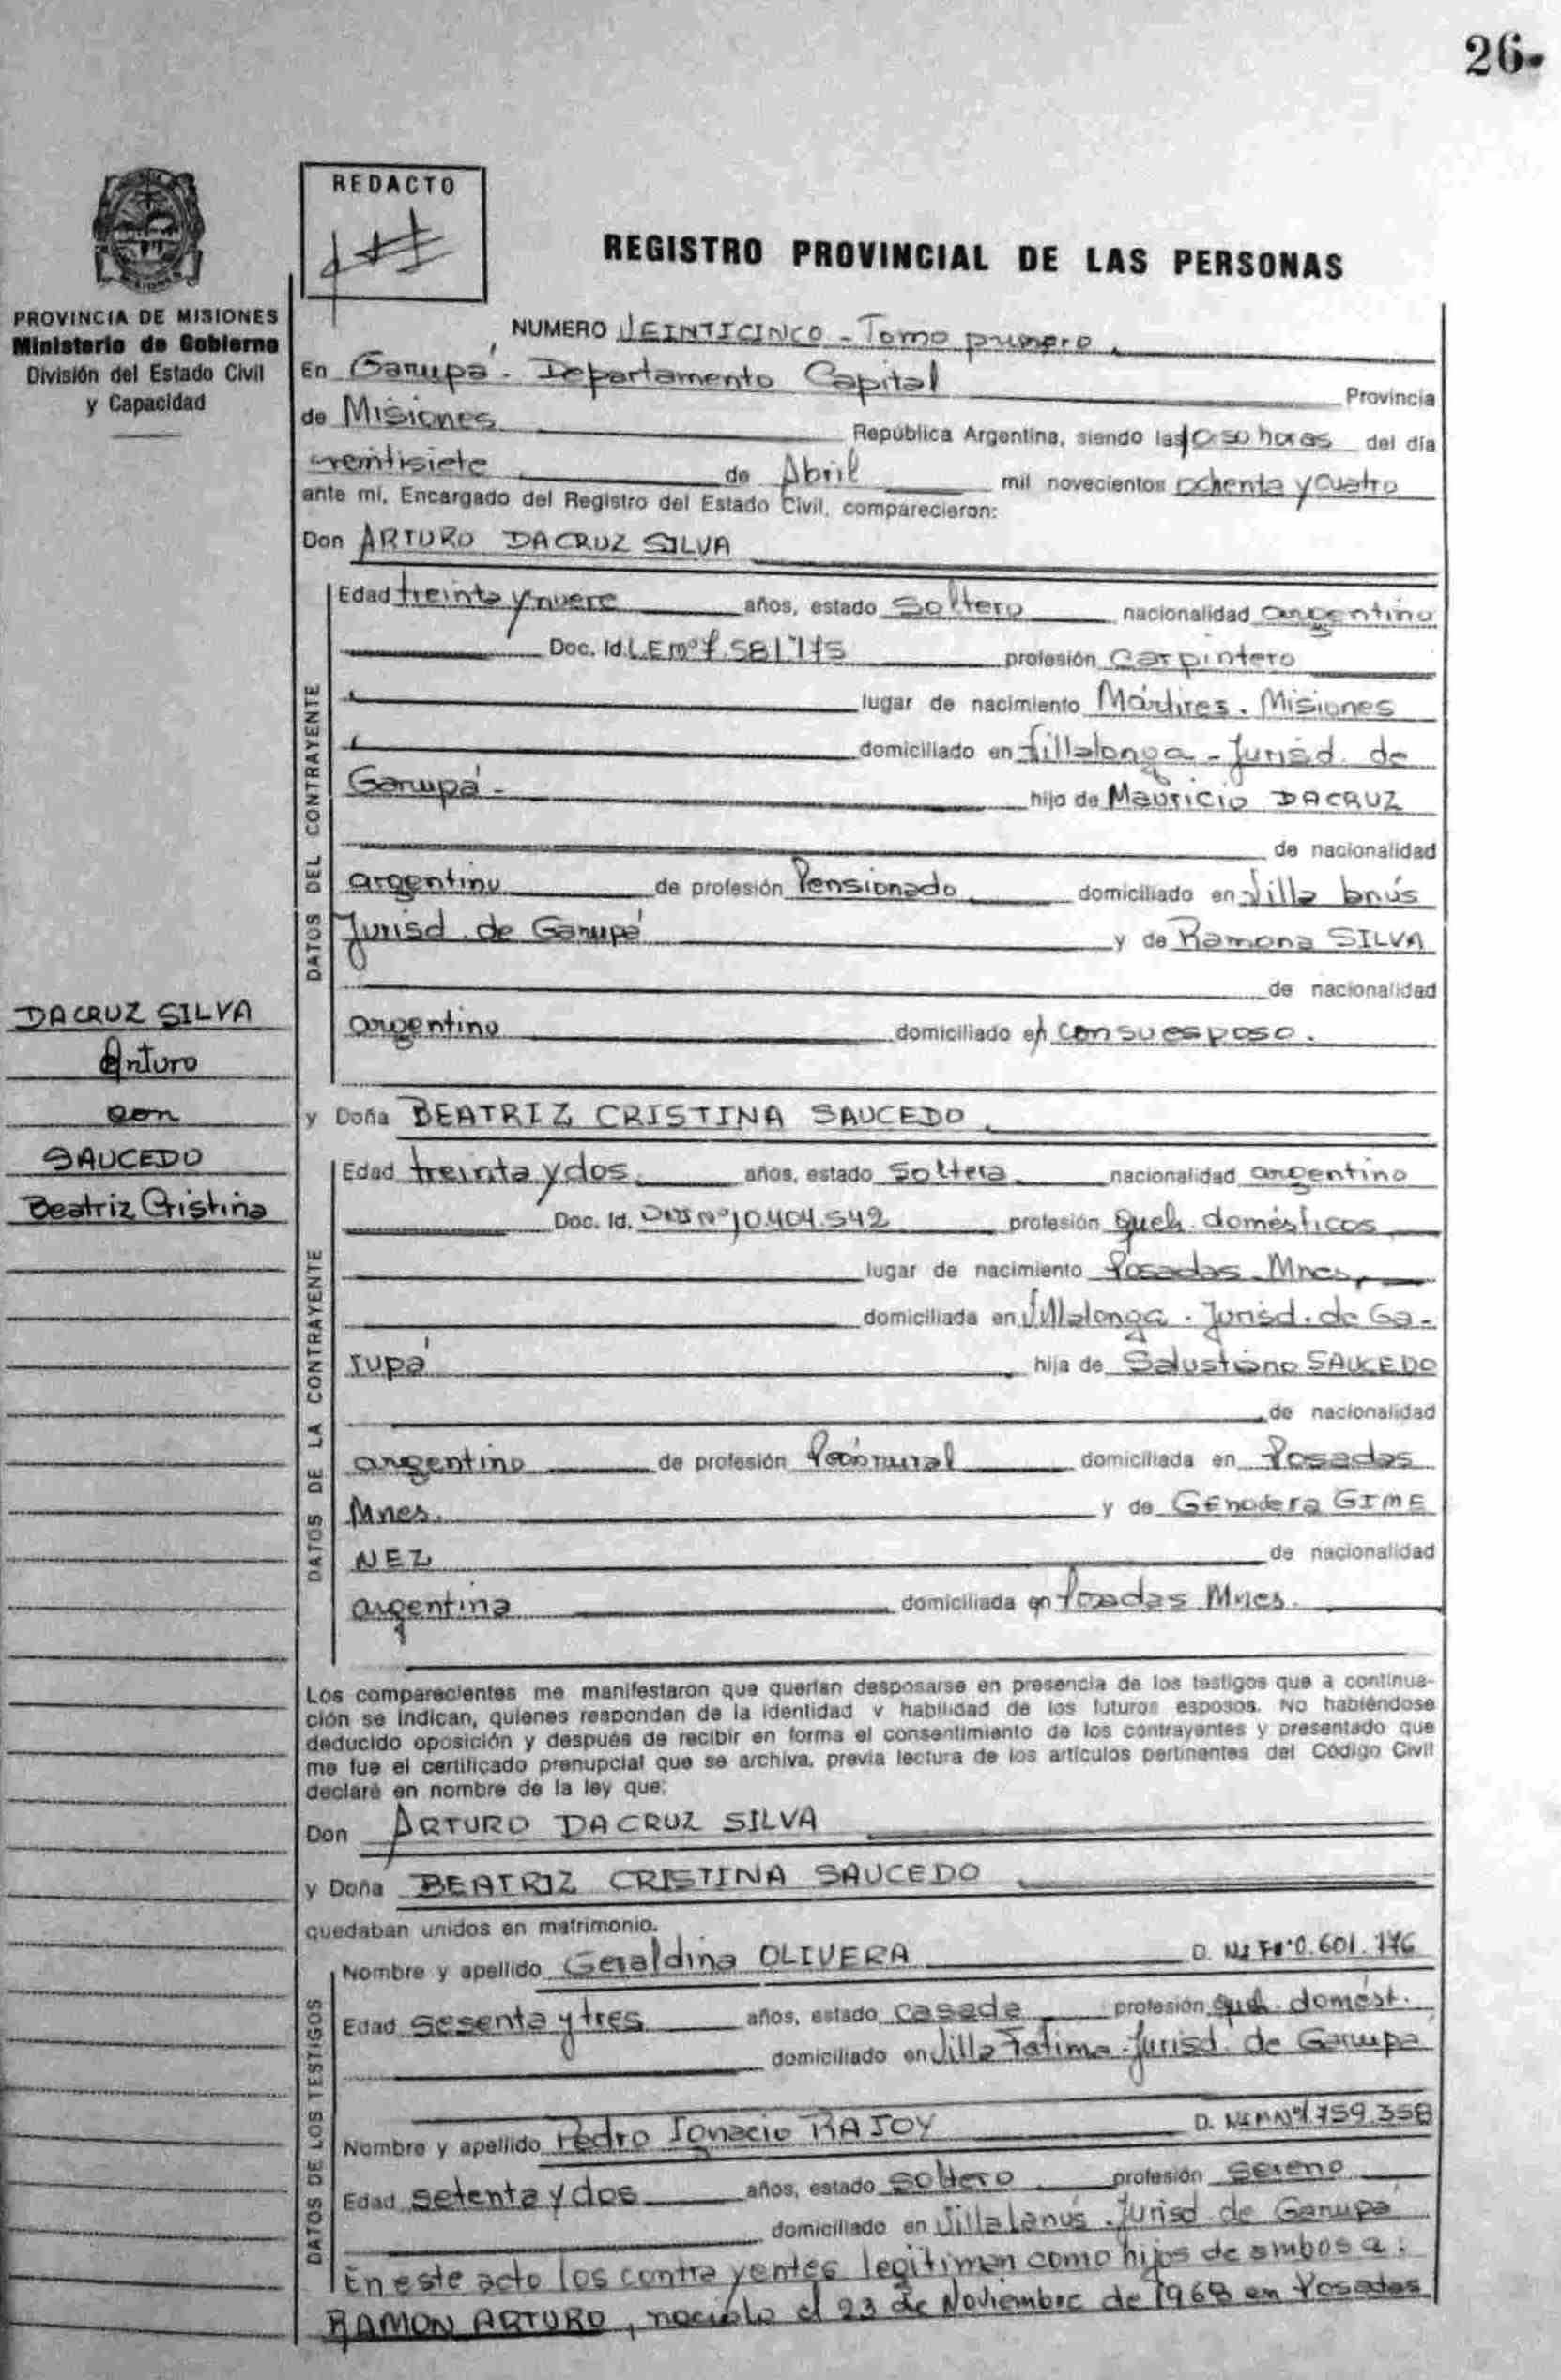 26.
REDACTO
REGISTRO PROVINCIAL DE LAS PERSONAS
PROVINCIA DE MISIONES
Ministerio de Gobierno
División del Estado Civil
y Capacidad
NUMERO VEINTICINCO - Tomo primero
En Garupá. Departamento Capital Provincia
de Misiones República Argentina, siendo las horas del día
veintisiete de Abril mil novecientos ochenta y cuatro
ante mí, Encargado del Registro del Estado Civil, comparecieron:
Don ARTURO DACRUZ SILVA
DATOS DEL CONTRAYENTE
Edad treinta y nueve años, estado Soltero nacionalidad argentino
Doc. Id. L.E nº 7.581.775 profesión carpintero
lugar de nacimiento Mártires. Misiones
domiciliado en Villalonga - Jurisd. de
Garupá - hijo de Mauricio DACRUZ
de nacionalidad
argentino de profesión Pensionado domiciliado en Villa Lanús
Jurisd. de Garupá y de Ramona SILVA
de nacionalidad
argentina domiciliado en con su esposo.
DACRUZ SILVA
Arturo
con
SAUCEDO
Beatriz Cristina
y Doña BEATRIZ CRISTINA SAUCEDO
DATOS DE LA CONTRAYENTE
Edad treinta y dos. años, estado Soltera nacionalidad argentina
Doc. Id. DNI Nº 10.404.542 profesión queh. domésticos
lugar de nacimiento Posadas Mnes,
domiciliada en Villalonga. Jurisd. de Ga-
rupá hija de Salustiano SAUCEDO
de nacionalidad
argentino de profesión domiciliada en Posadas
Mnes. y de GIME
NEZ de nacionalidad
argentina domiciliada en Posadas Mnes.
Los comparecientes me manifestaron que querían desposarse en presencia de los testigos que a continua-
ción se indican, quienes responden de la identidad y habilidad de los futuros esposos. No habiéndose
deducido oposición y después de recibir en forma el consentimiento de los contrayentes y presentado que
me fue el certificado prenupcial que se archiva, previa lectura de los artículos pertinentes del Código Civil
declaré en nombre de la ley que:
Don ARTURO DACRUZ SILVA
y Doña BEATRIZ CRISTINA SAUCEDO
quedaban unidos en matrimonio.
DATOS DE LOS TESTIGOS
Nombre y apellido Geraldina OLIVERA D.
Edad Sesenta y tres años, estado casada profesión queh. domést.
domiciliado en Villa Fatima - Jurisd. de Garupá
Nombre y apellido Pedro Ignacio RAJOY D.
Edad setenta y dos años, estado soltero profesión sereno
domiciliado en Villa Lanús. Jurisd. de Garupá
En este acto los contrayentes legitiman como hijos de ambos a:
RAMON ARTURO, nacido el 23 de Noviembre de 1968 en Posadas